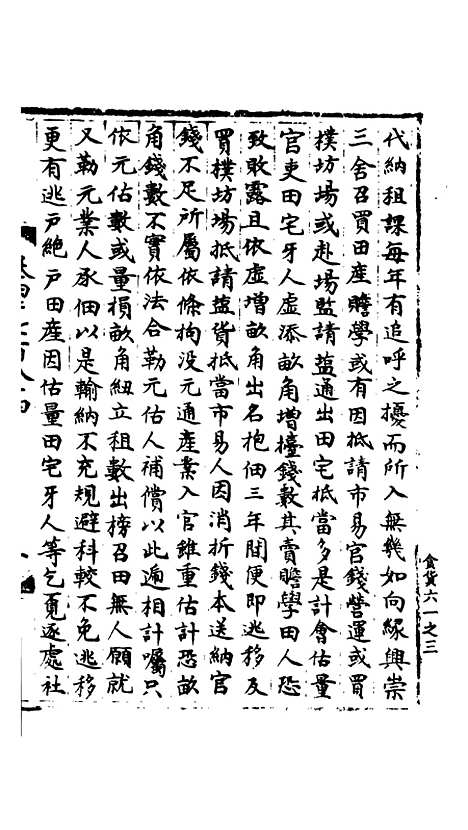 代納租課每年有追呼之擾而所入無幾如向緣興崇
三舍召買田產贍學或有因抵請市易官錢營運或買
撲坊場或赴場監請鹽通出田宅抵當多是計會估量
官吏田宅牙人虛添畝角增擡錢數其賣贍學田人恐
致敗露且依虛增畝角出名抱佃三年間便即逃移及
買撲坊場抵請鹽貨抵當市易人因消折錢本送納官
錢不足所屬依條拘沒元通產業入官雖重估計恐畝
角錢數不實依法合勒元估人補償以此遞相計囑只
依元估數或量損畝角紐立租數出榜召田無人願就
又勒元業人承佃以是輸納不充規避科較不免逃移
更有逃戶絕戶田產因估量田宅牙人等乞覓逐處社
食貨六一之三